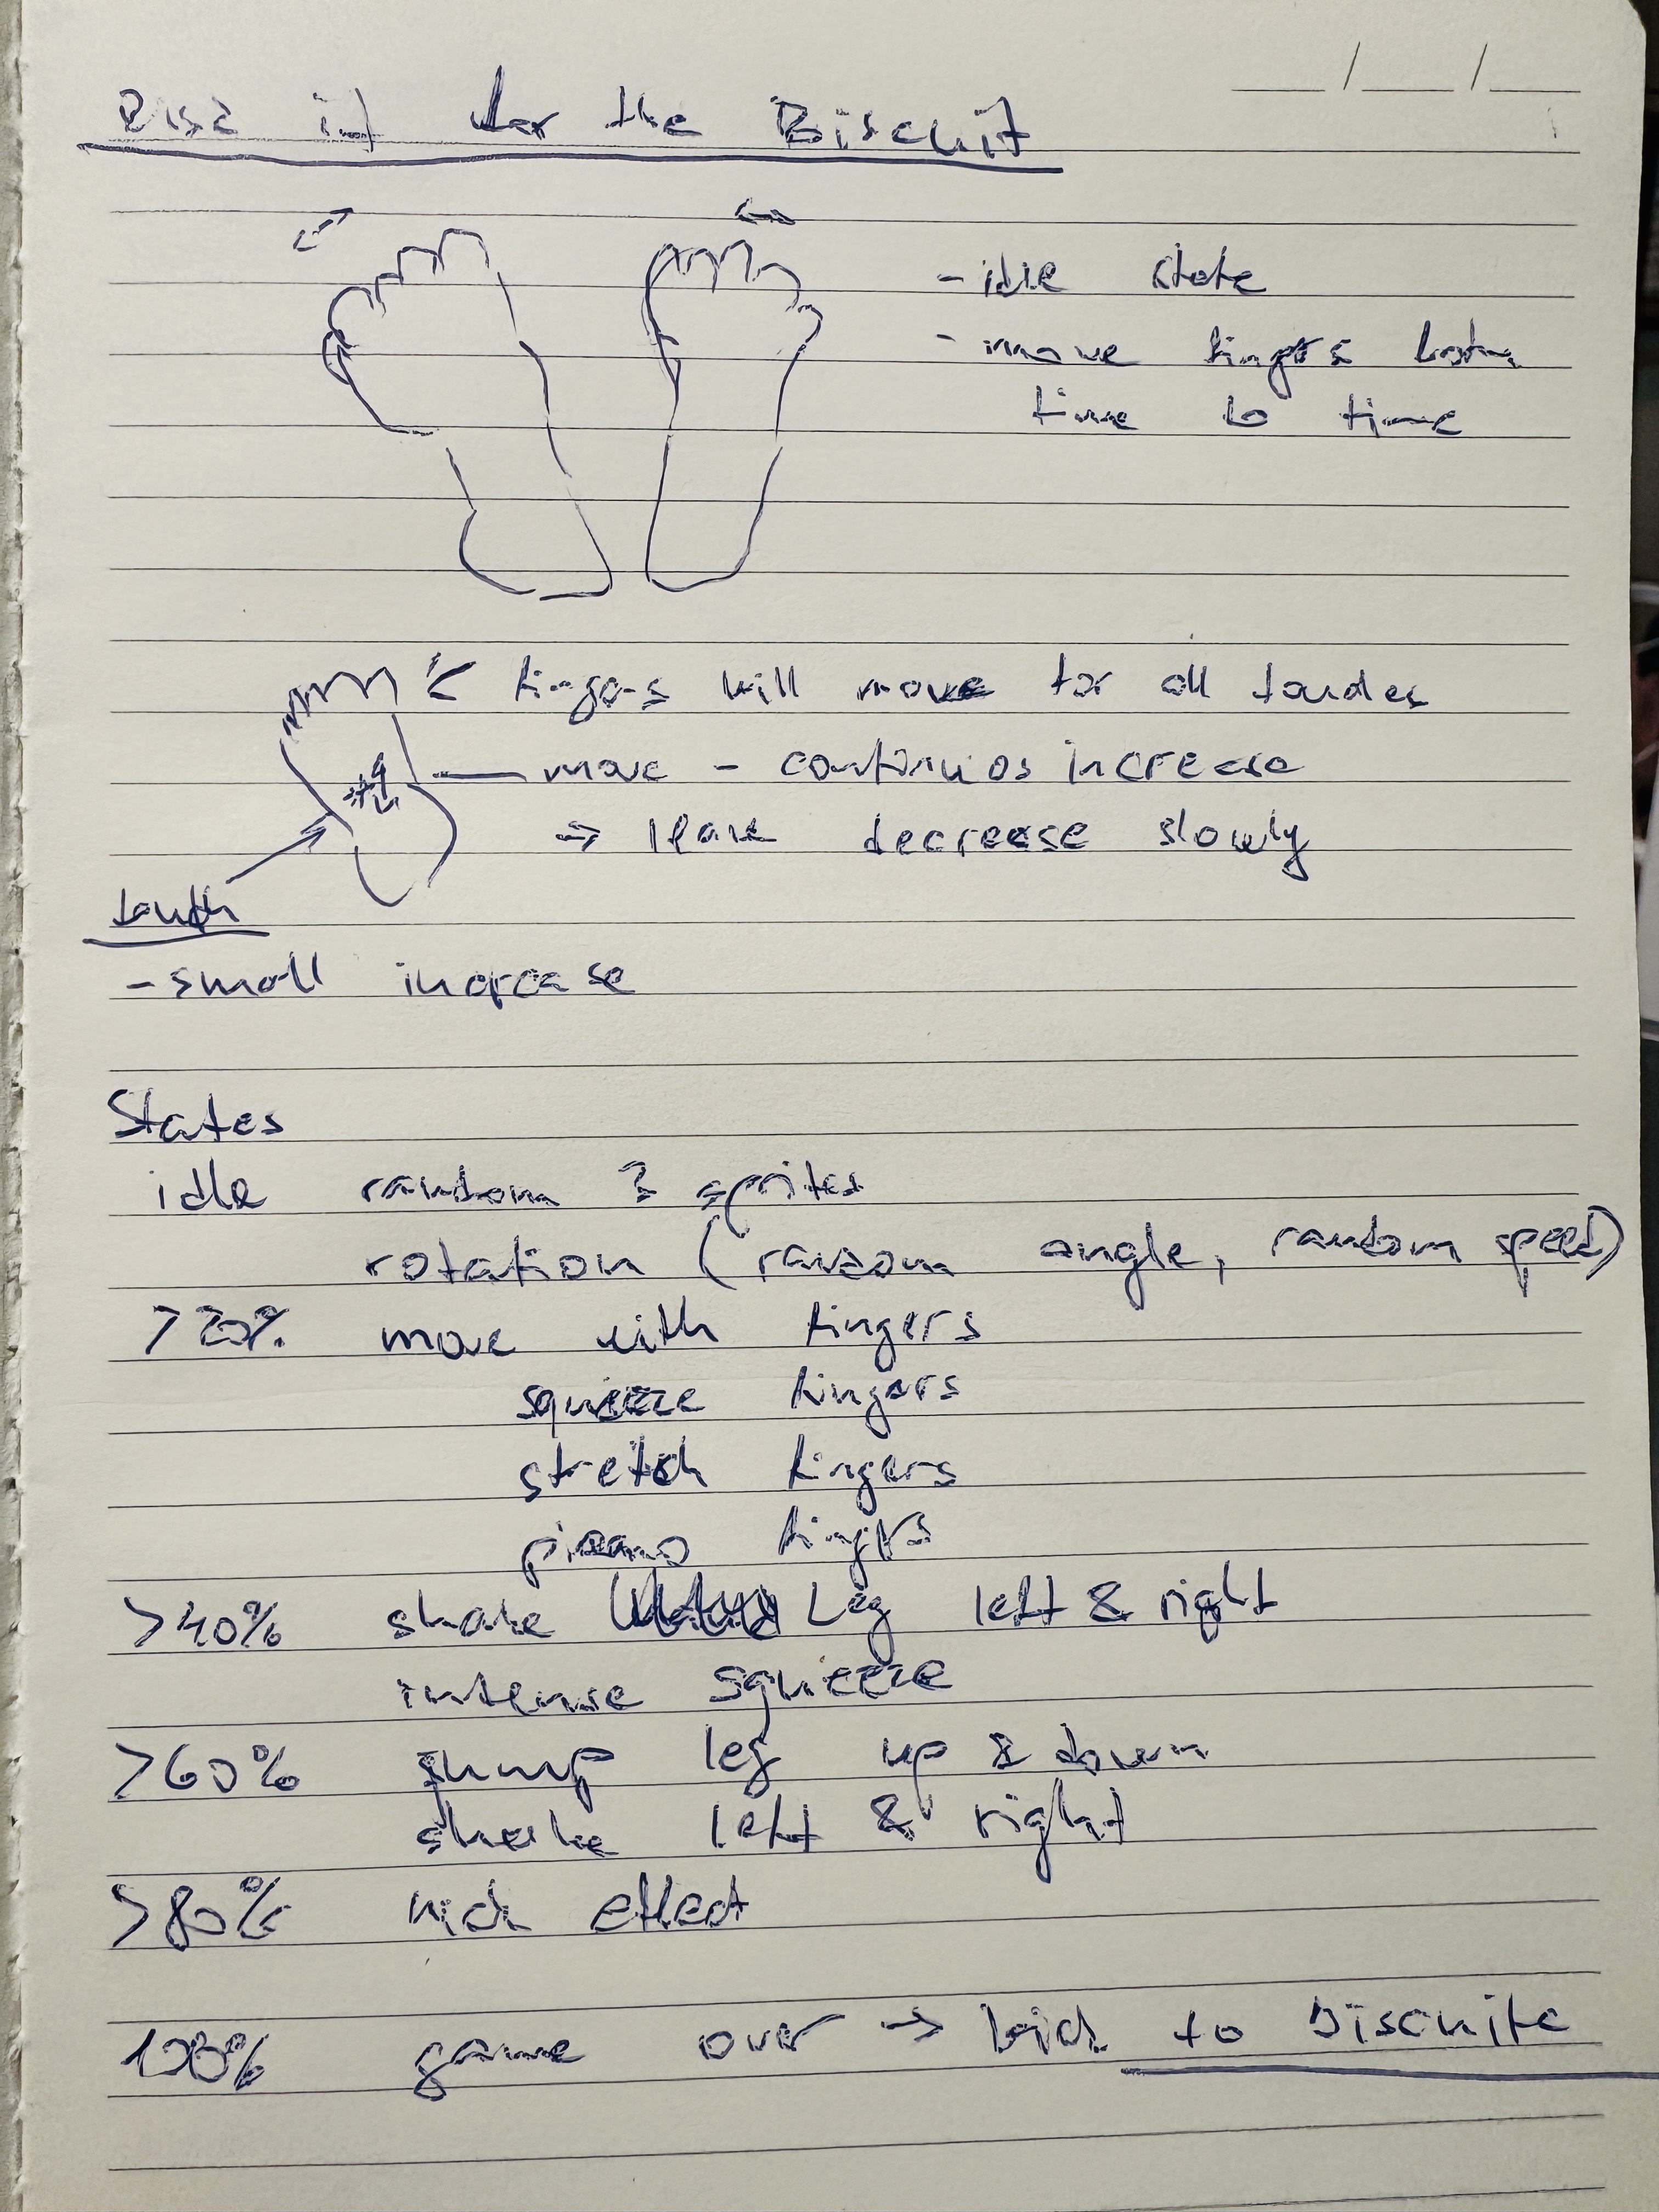 Risk it for the Biscuit
- idle state
- move fingers from
time to time
fingers will move for all touches
move - continuos increase
→ leave decrease slowly
touch
- small increase
States
idle random 3 sprites
rotation (random angle, random speed)
>20% move with fingers
squeeze fingers
stretch fingers
piano fingers
>40% shake Leg left & right
intense squeeze
>60% jump leg up & down
shake left & right
>80% kick effect
100% game over → kick to Biscuite